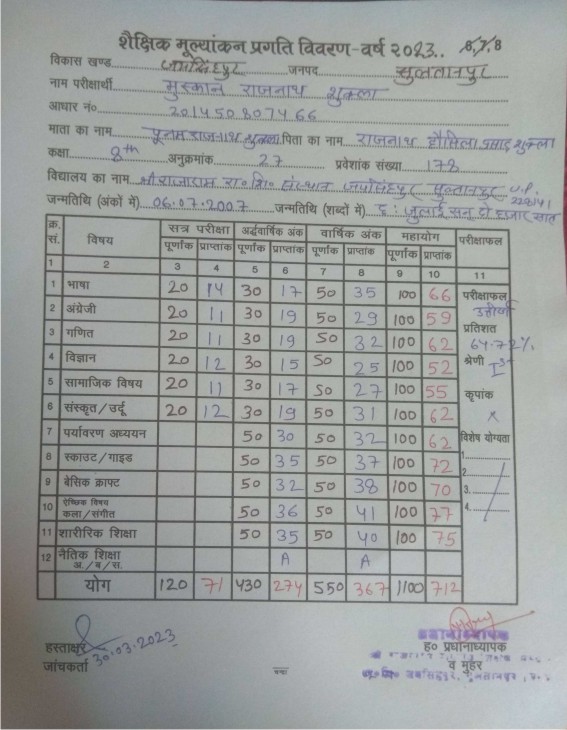 शैक्षिक मूल्यांकन प्रगति विवरण-वर्ष 2023.. 6,7,8
विकास खण्ड जयसिंहपुर जनपद सुलतानपुर
नाम परीक्षार्थी मुस्कान राजनाथ शुक्ला
आधार नं० 201450807466
माता का नाम पूनम राजनाथ शुक्ला पिता का नाम राजनाथ हौसिला प्रसाद शुक्ला
कक्षा 8th अनुक्रमांक 27 प्रवेशांक संख्या 178
विद्यालय का नाम श्री राजाराम रा० शि० संस्थान जयसिंहपुर सुल्तानपुर U.P. 228141
जन्मतिथि (अंकों में) 06.07.2007 जन्मतिथि (शब्दों में) छ: जुलाई सन् दो हजार सात
क्र. सं. विषय सत्र परीक्षा अर्द्धवार्षिक अंक वार्षिक अंक महायोग परीक्षाफल
पूर्णांक प्राप्तांक पूर्णांक प्राप्तांक पूर्णांक प्राप्तांक पूर्णांक प्राप्तांक
1 2 3 4 5 6 7 8 9 10 11
1 भाषा 20 14 30 17 50 35 100 66 परीक्षाफल उत्तीर्ण
2 अंग्रेजी 20 11 30 19 50 29 100 59 प्रतिशत
3 गणित 20 11 30 19 50 32 100 62 64.72%
4 विज्ञान 20 12 30 15 50 25 100 52 श्रेणी Ist
5 सामाजिक विषय 20 11 30 17 50 27 100 55 कृपांक
6 संस्कृत/उर्दू 20 12 30 19 50 31 100 62 x
7 पर्यावरण अध्ययन 50 30 50 32 100 62 विशेष योग्यता
8 स्काउट/गाइड 50 35 50 37 100 72 1. 2.
9 बेसिक क्राफ्ट 50 32 50 38 100 70 3.
10 ऐच्छिक विषय कला/संगीत 50 36 50 41 100 77 4.
11 शारीरिक शिक्षा 50 35 50 40 100 75
12 नैतिक शिक्षा अ./ब/स. A A
योग 120 71 430 274 550 367 1100 712
हस्ताक्षर
जांचकर्ता 30.03.2023
प्रधानाध्यापक
ह० प्रधानाध्यापक
व मुहर